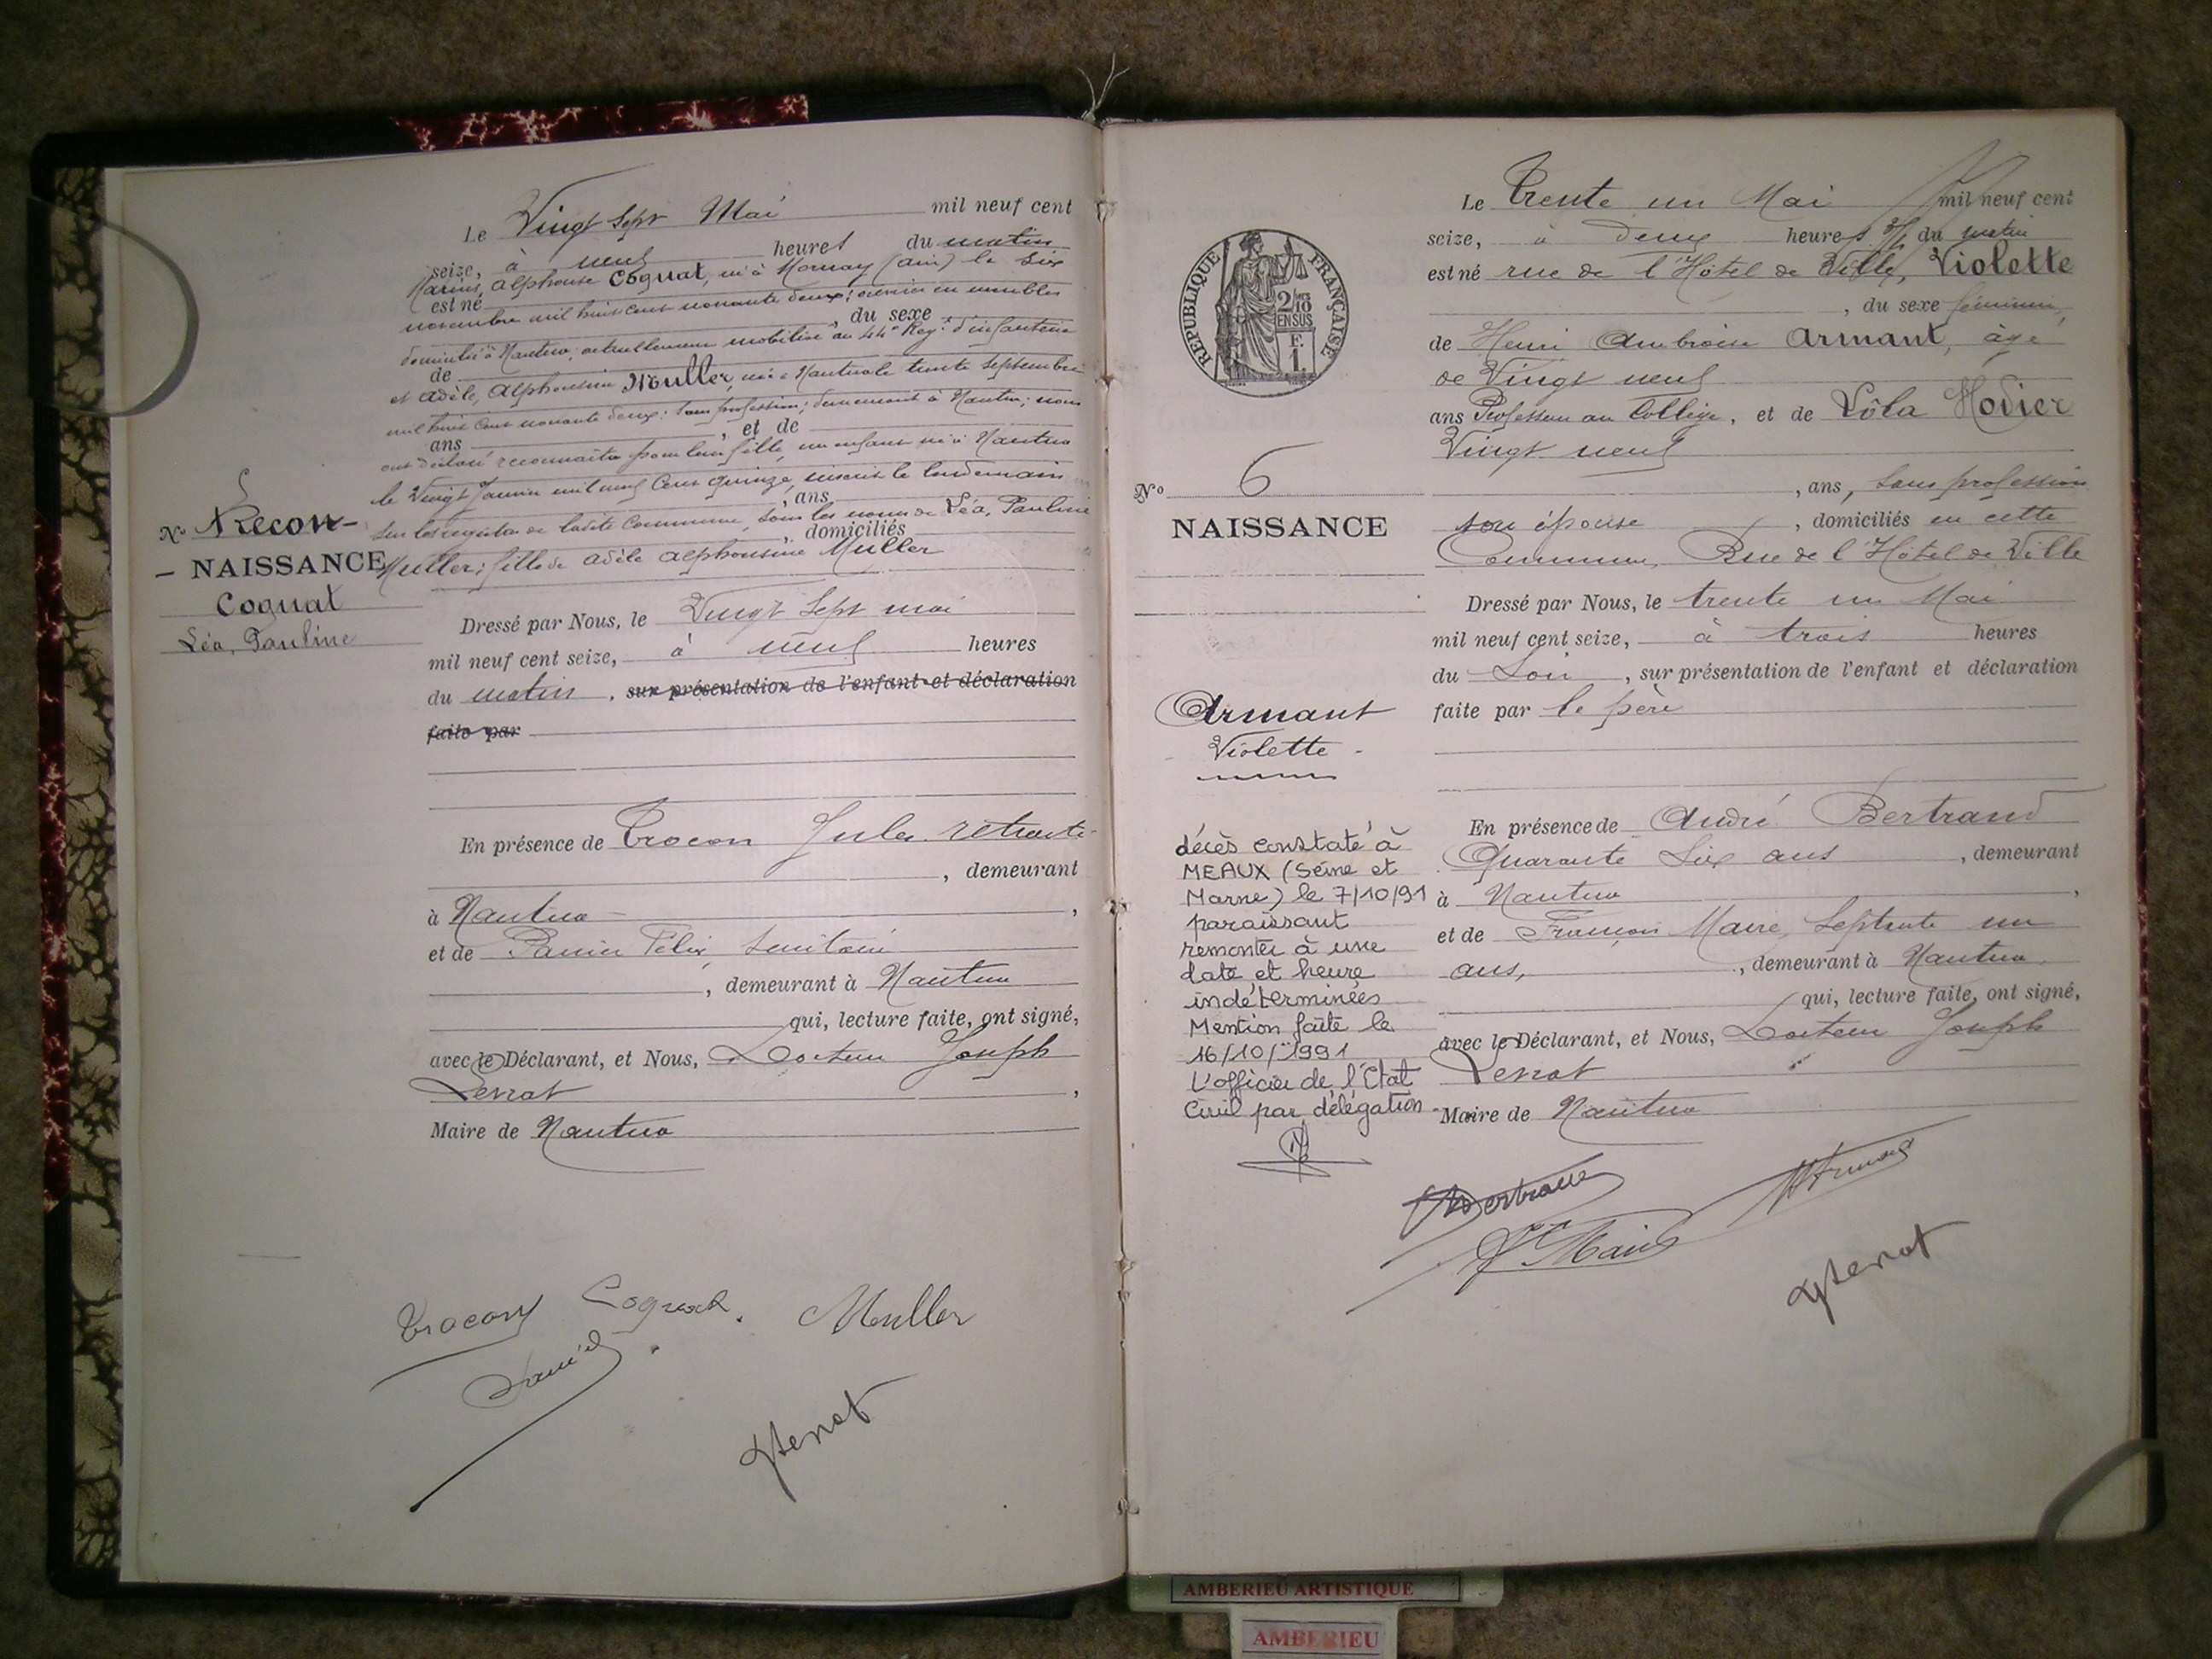 Le Vingt Sept Mai mil neuf cent
seize, à neuf heures du matin
Marius, Alphonse Cognat, né à Mornay (Ain) le six
est né
novembre mil huit cent nonante deux; ouvrier en meubles
, du sexe
domicilié à Nantua, actuellement mobilisé au 44e Regt d'infanterie
de
et Adèle, Alphonsine Muller, née à Nantua le trente septembre
mil huit cent nonante deux: sans profession; demeurant à Nantua; nous
ans , et de
ont déclaré reconnaître pour leur fille, un enfant né à Nantua
le Vingt Janvier mil neuf Cent quinze, inscrit le lendemain
, ans
sur les registres de ladite Commune, sous les noms de Léa, Pauline
domiciliés
Muller; fille de Adèle Alphonsine Muller
N° Recon-
- NAISSANCE
Cognat
Léa, Pauline
Dressé par Nous, le Vingt Sept mai
mil neuf cent seize, à neuf heures
du matin, sur présentation de l'enfant et déclaration
faite par
En présence de Trocon Jules retraité
, demeurant
à Nantua ,
et de Félix,
, demeurant à Nantua
qui, lecture faite, ont signé,
avec le Déclarant, et Nous, Docteur Joseph
Levrat ,
Maire de Nantua
Trocon Cognat. Muller
RÉPUBLIQUE FRANÇAISE
2/10 EN SUS
F. 1.
N° 6
NAISSANCE
Armant
Violette
décès constaté à
MEAUX (Seine et
Marne) le 7/10/91
paraissant
remonter à une
date et heure
indéterminées
Mention faite le
16/10/1991
L'officier de l'Etat
Civil par délégation
Le Trente un Mai mil neuf cent
seize, à deux heures ½ du matin
est né rue de l'Hôtel de Ville, Violette
, du sexe féminin,
de Henri Ambroise Armant, âgé
de Vingt neuf
ans Professeur au Collège, et de Lôla Hodier
Vingt neuf
, ans, sans profession
son épouse , domiciliés en cette
Commune, Rue de l'Hôtel de Ville
Dressé par Nous, le trente un Mai
mil neuf cent seize, à trois heures
du Soir , sur présentation de l'enfant et déclaration
faite par le père
En présence de André Bertrand
Quarante Six ans , demeurant
à Nantua ,
et de François Maire, Septante un
ans, , demeurant à Nantua
qui, lecture faite, ont signé,
avec le Déclarant, et Nous, Docteur Joseph
Levrat
Maire de Nantua
Bertrand
AMBERIEU ARTISTIQUE
AMBERIEU